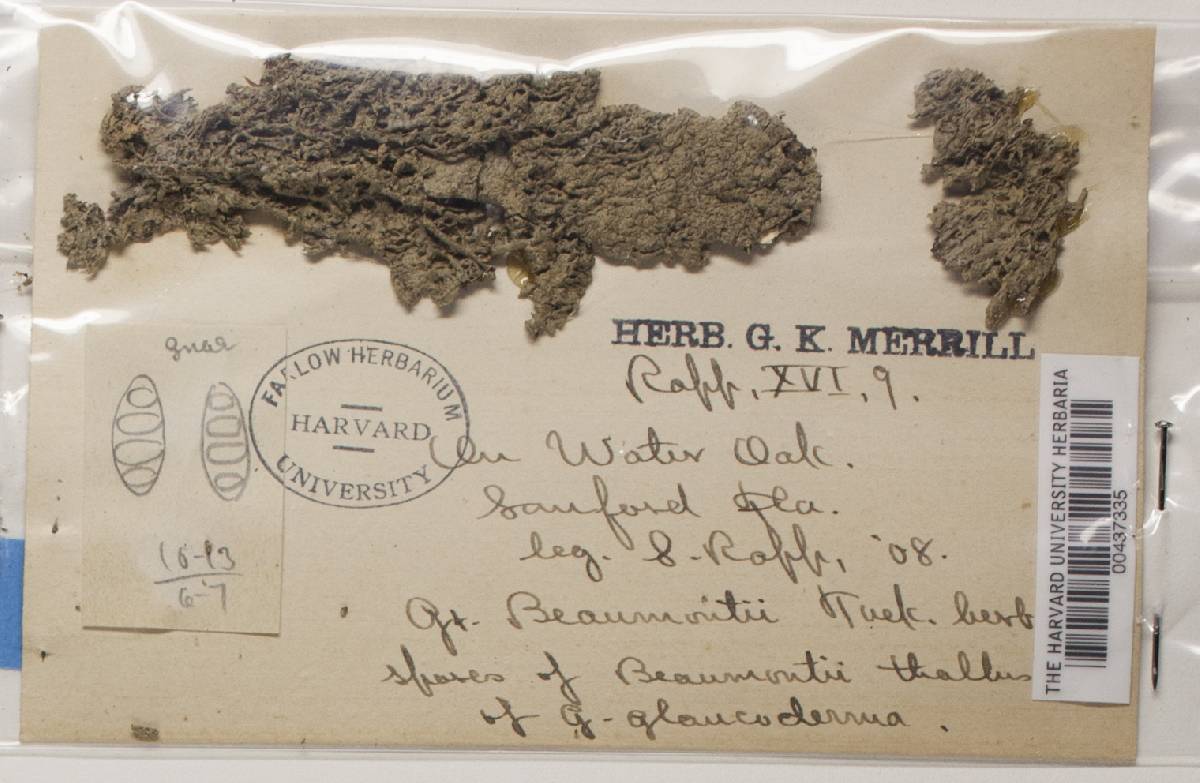 HERB. G. K. MERRILL
Rapp, XVI, 9.
On Water Oak.
Sanford Fla.
leg. S. Rapp, '08.
Gr. Beaumontii Tuck. herb
spores of Beaumontii thallus
of G. glaucoderma.
FARLOW HERBARIUM
HARVARD
UNIVERSITY
10-13
6-7
THE HARVARD UNIVERSITY HERBARIA
00437335